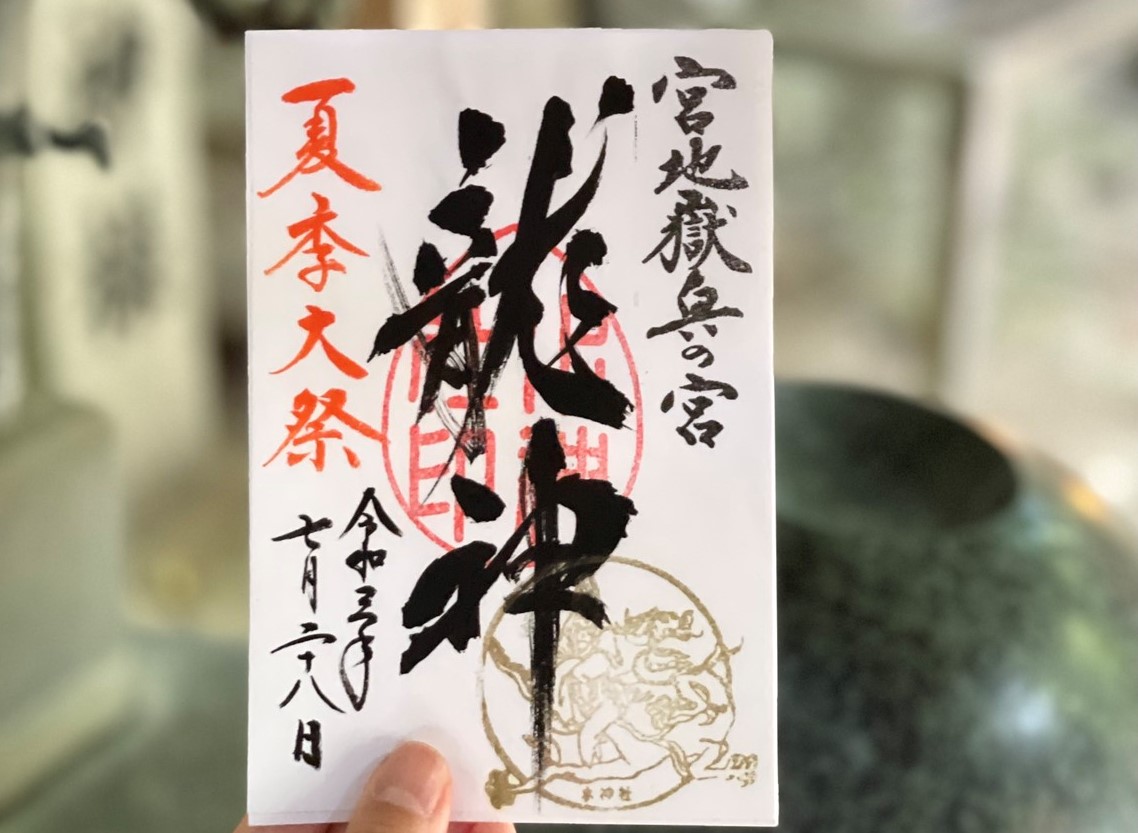 宮地嶽奥の宮
龍神
夏季大祭
令和三年
七月二十八日
水神社